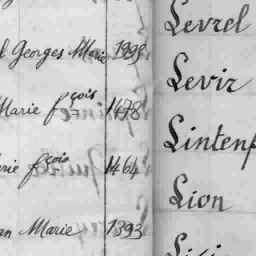 Georges Marie 1998
Marie fçois 1478
fçois 1464
Marie 1393
Levrel
Levir
Lintenf
Lion